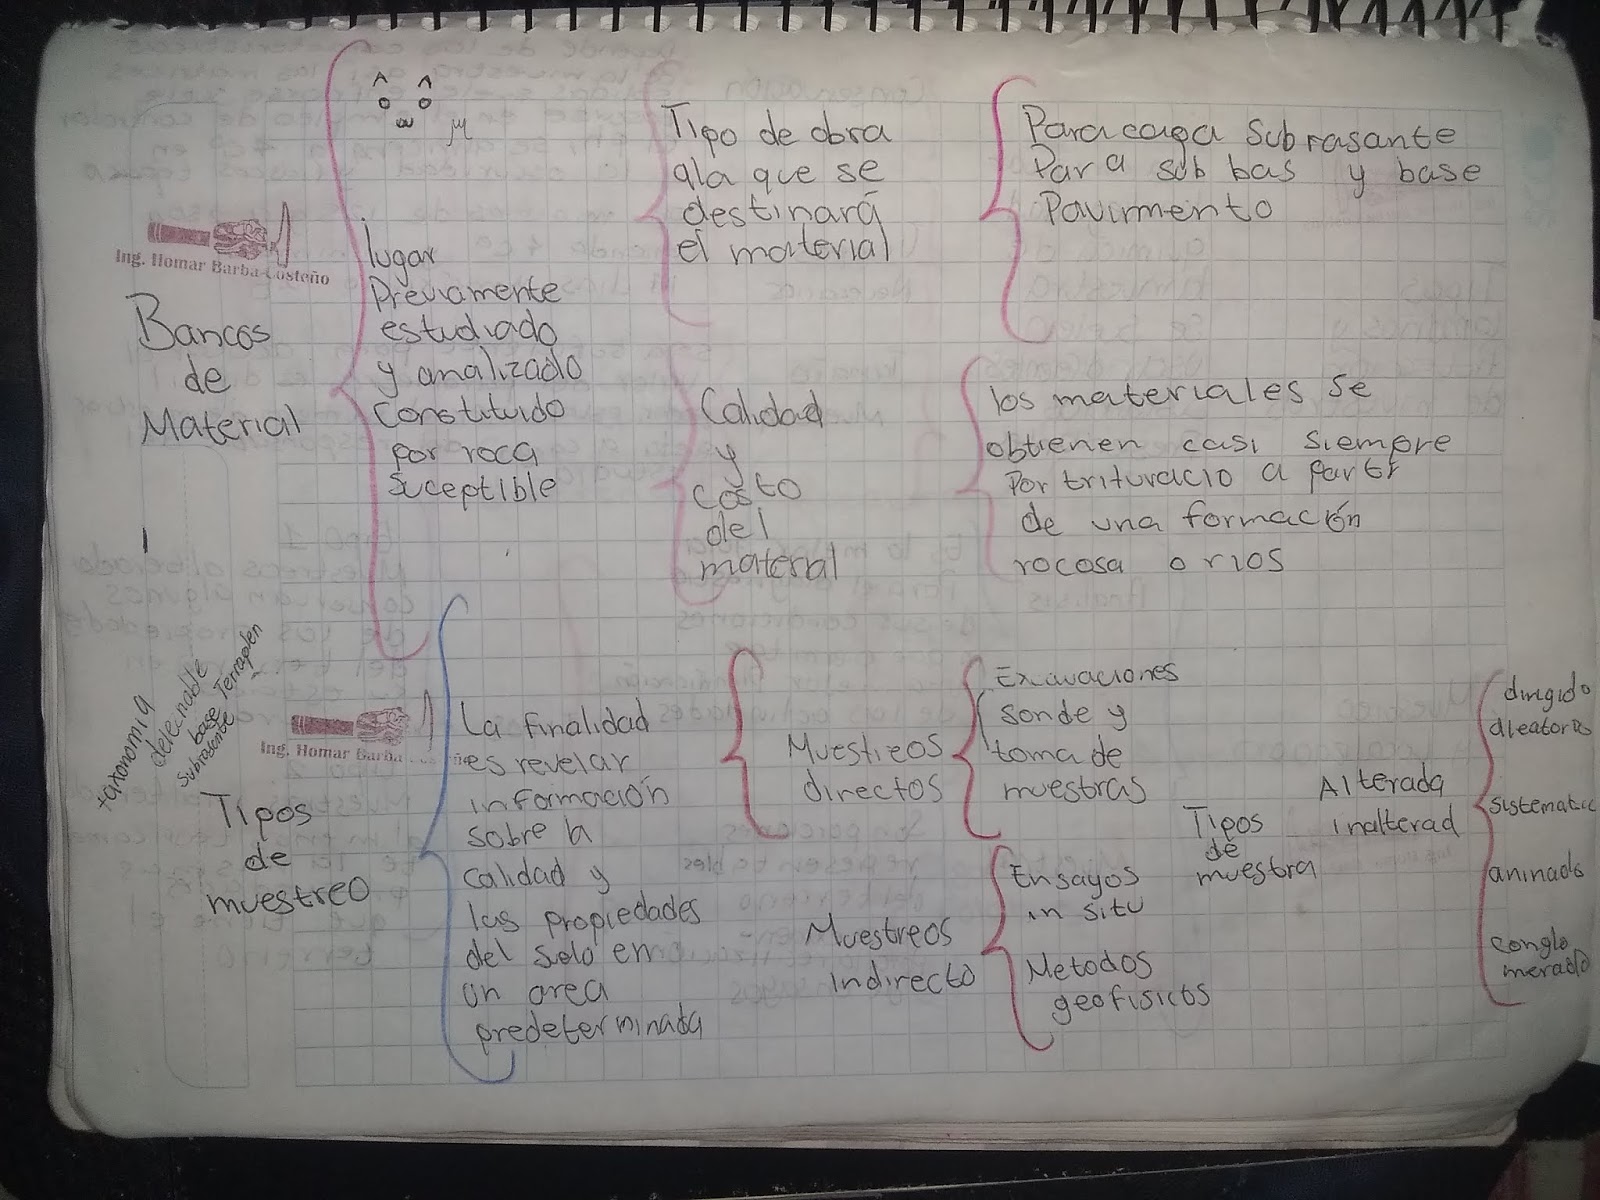 Ing. Homar Barba Costeño
Bancos
de
Material
lugar
Previamente
estudiado
y analizado
Constituido
por roca
Suceptible
Tipo de obra
ala que se
destinará
el material
Para caga Subrasante
Para sub bas y base
Pavirmento
Calidad
y
costo
del
material
los materiales se
obtienen casi siempre
Por trituracio a partr
de una formación
rocosa o rios
taxonomia
deleznable
base Terraplen
Subrasente
Ing. Homar Barba
Tipos
de
muestreo
La finalidad
es revelar
información
sobre la
calidad y
las propiedades
del suelo en
un area
predeterminada
Muestreos
directos
Excavaciones
sonde y
toma de
muestras
Muestreos
Indirecto
Ensayos
in situ
Metodos
geofisicos
Tipos
de
muestra
Alterada
inalterad
dirigido
aleatorio
sistematic
conglo
merado